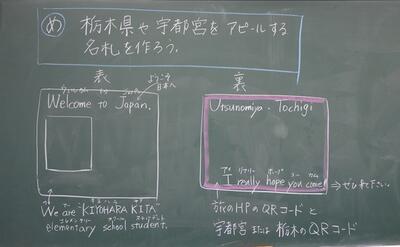 め 栃木県や宇都宮をアピールする
名札を作ろう。
表
ようこそ
日本へ
Welcome to Japan.
We are "KIYOHARA KITA"
elementary school student.
裏
Utsunomiya. Tochigi
アイ リアリー ホープ ユー カム
I really hope you come! → ぜひ来て下さい
旅のHPのQRコードと
宇都宮または栃木のQRコード